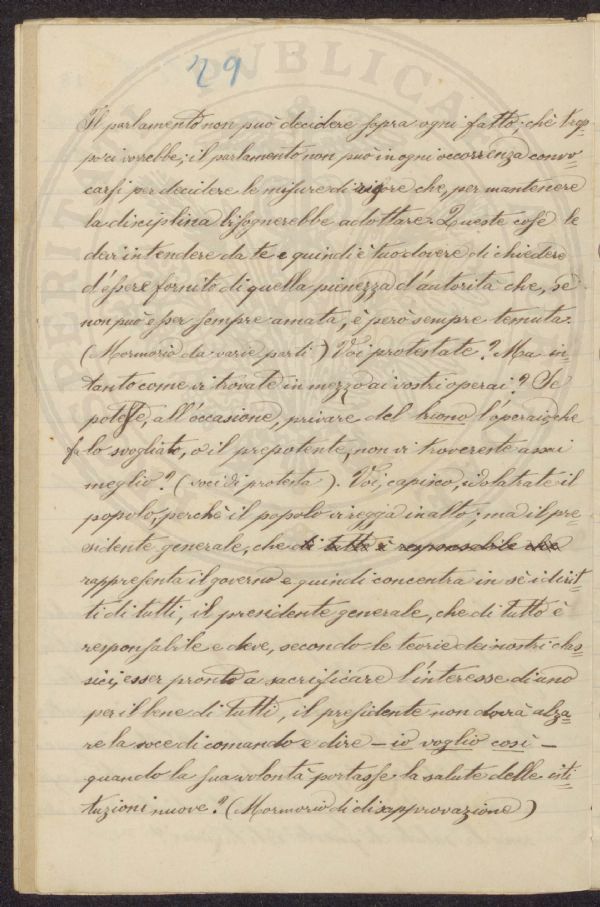 29
Il parlamento non può decidere sopra ogni fatto; chè trop=
po ci vorrebbe; il parlamento non può in ogni occorrenza convo=
carsi per decidere le misure di rigore che, per mantenere
la disciplina bisognerebbe adottare. Queste cose le
devi intendere da te e quindi è tuo dovere di chiedere
d'essere fornito di quella pienezza d'autorità che, se
non può esser sempre amata, è però sempre temuta.
(Mormorio da varie parti) Voi protestate? Ma in=
tanto come vi trovate in mezzo ai vostri operai? Se
poteste, all'occasione, privare del buono l'operaio, che
fa lo svogliato, o il prepotente, non vi trovereste assai
meglio? (voci di protesta). Voi, capisco, idolatrate il
popolo, perchè il popolo vi regga in alto; ma il pre=
sidente generale, che di tutto è responsabile che
rappresenta il governo e quindi concentra in sè i dirit=
ti di tutti, il presidente generale, che di tutto è
responsabile e deve, secondo le teorie dei nostri clas=
sici, esser pronto a sacrificare l'interesse di uno
per il bene di tutti, il presidente non dovrà alza=
re la voce di comando e dire – io voglio così –
quando la sua volontà portasse la salute delle isti=
tuzioni nuove? (Mormorio di disapprovazione)
PUBLICA